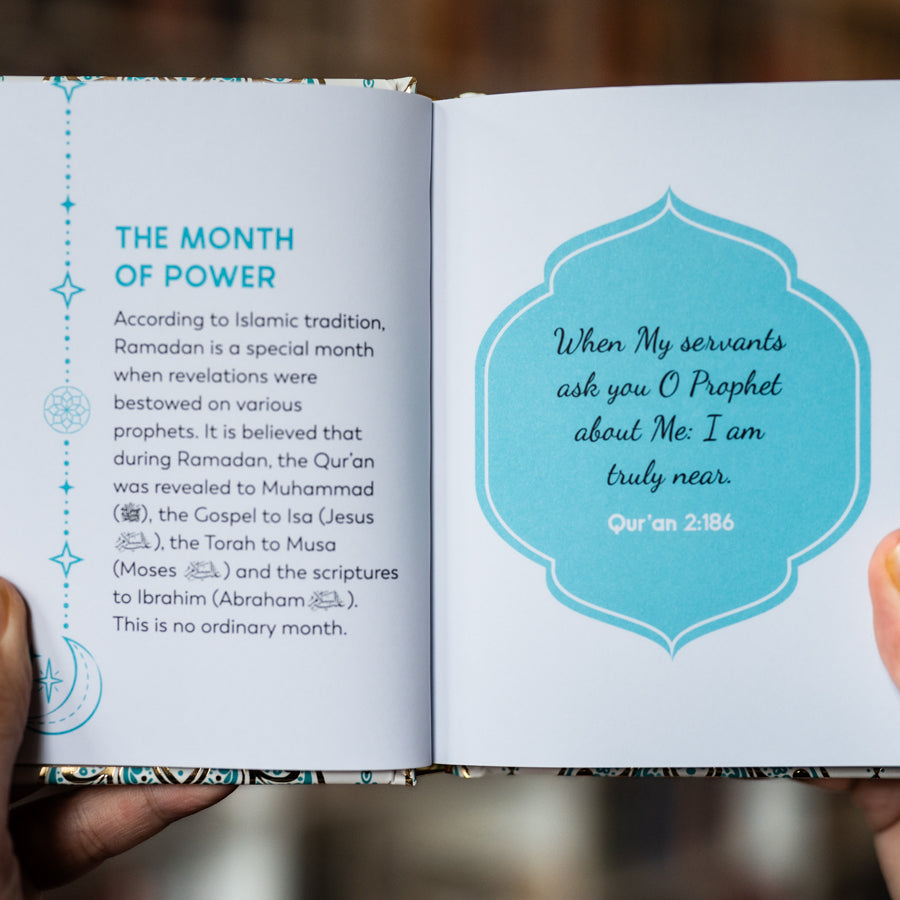 THE MONTH
OF POWER
According to Islamic tradition,
Ramadan is a special month
when revelations were
bestowed on various
prophets. It is believed that
during Ramadan, the Qur’an
was revealed to Muhammad
(ﷺ), the Gospel to Isa (Jesus
), the Torah to Musa
(Moses ) and the scriptures
to Ibrahim (Abraham ).
This is no ordinary month.
When My servants
ask you O Prophet
about Me: I am
truly near.
Qur’an 2:186